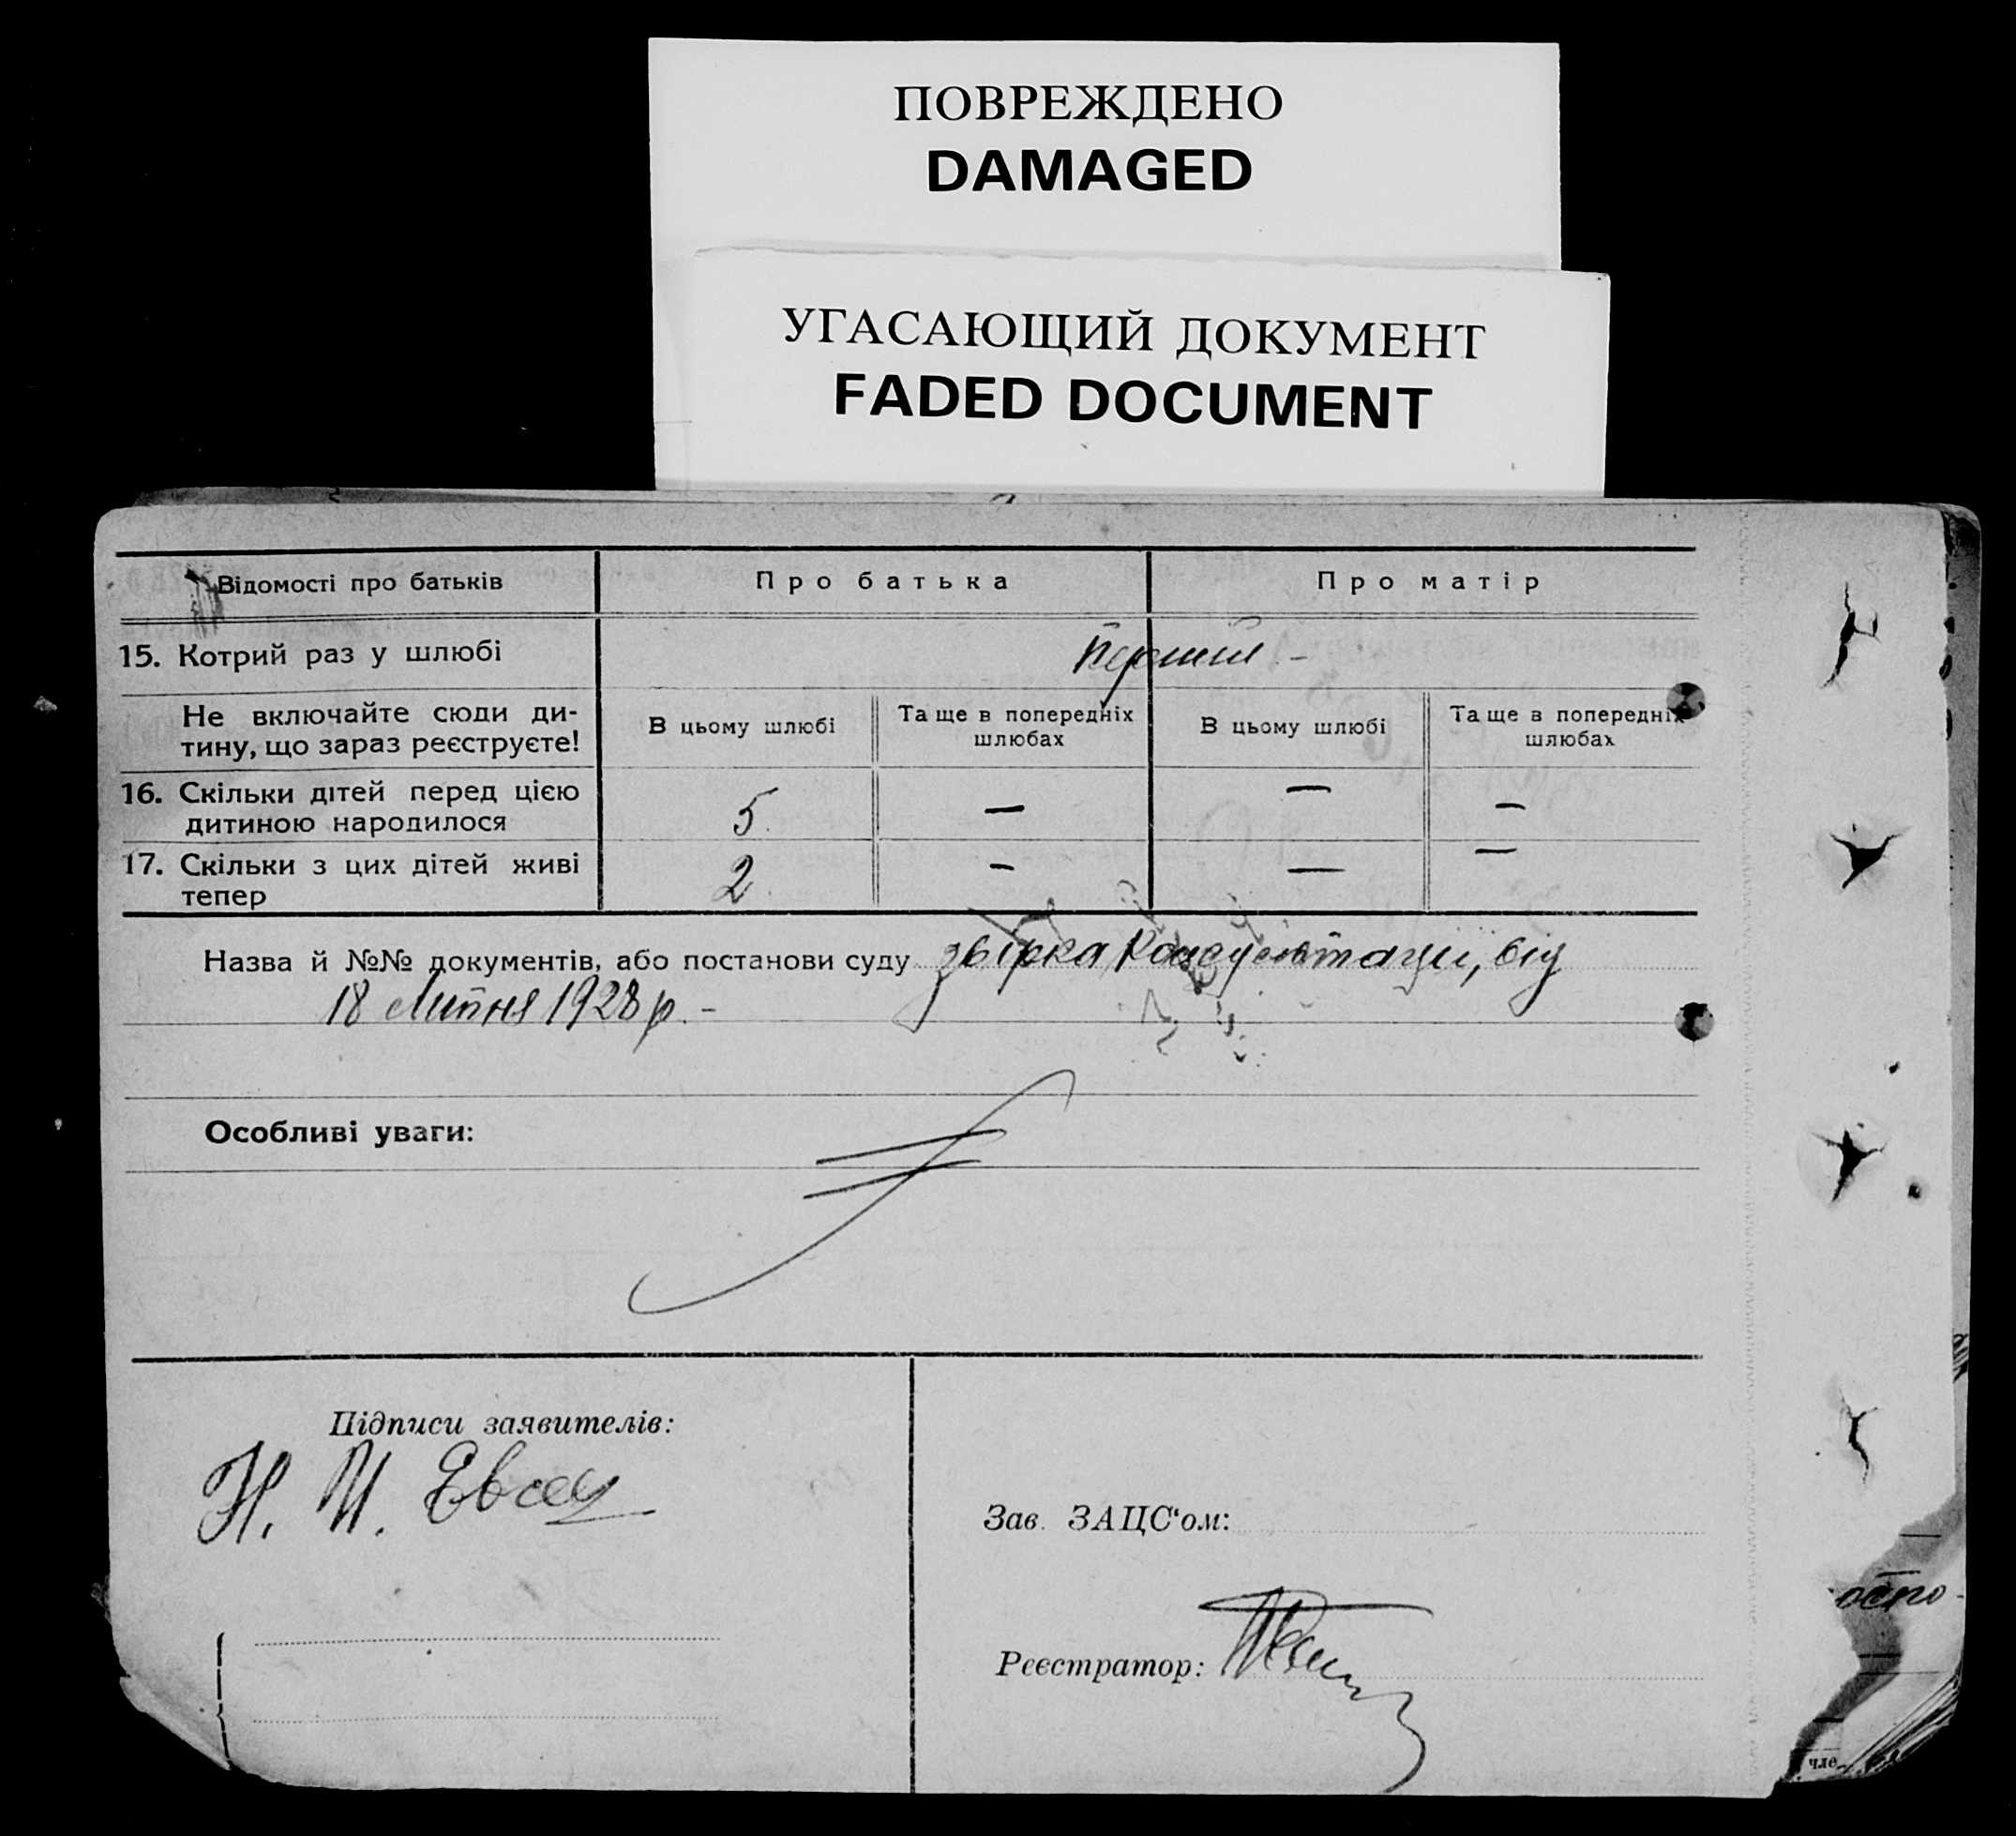 ПОВРЕЖДЕНО
DAMAGED
УГАСАЮЩИЙ ДОКУМЕНТ
FADED DOCUMENT
Відомості про батьків
Про батька
Про матір
15. Котрий раз у шлюбі
перший -
Не включайте сюди ди-
тину, що зараз реєструєте!
В цьому шлюбі
Та ще в попередніх
шлюбах
В цьому шлюбі
Та ще в попередніх
шлюбах
16. Скільки дітей перед цією
дитиною народилося
5
—
—
—
17. Скільки з цих дітей живі
тепер
2
—
—
—
Назва й №№ документів, або постанови суду звірка Консультації, від
18 Липня 1928 р. -
Особливі уваги:
Підписи заявителів:
Н. И.
Зав. ЗАЦС‘ом:
Реєстратор:
чле